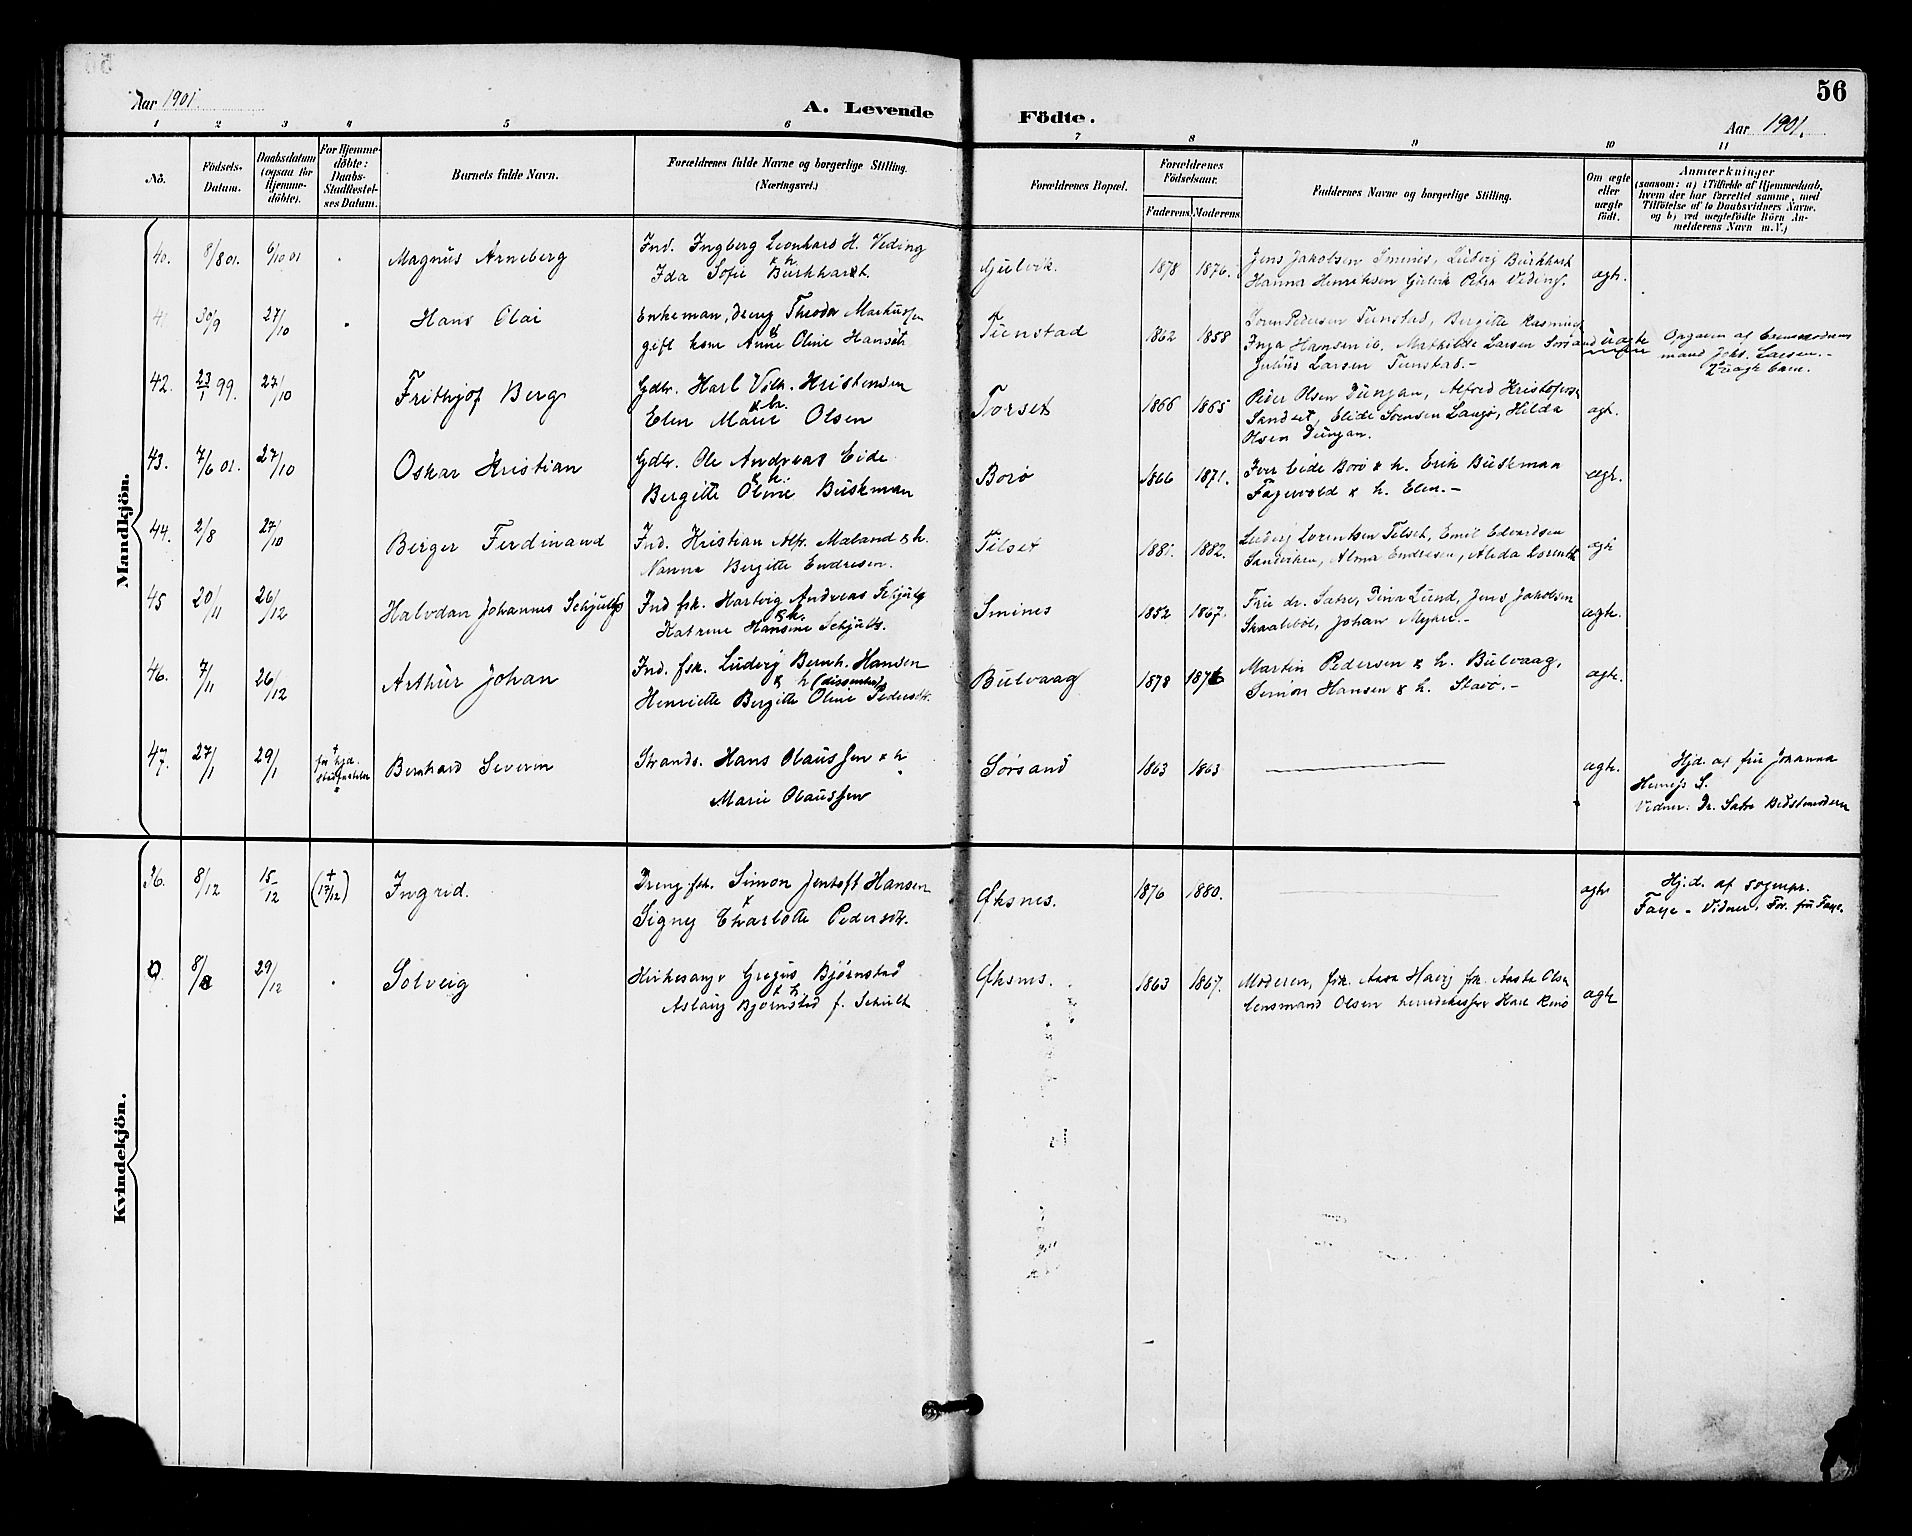 56
Aar 1901.
A. Levende
Födte.
Aar 1901.
1 2 3 4 5 6 7 8 9 10 11
No.
Födsels-Datum.
Daabsdatum (ogsaa for Hjemmedöbte).
For Hjemmedöbte: Daabs-Stadfæstelses Datum.
Barnets fulde Navn.
Forældrenes fulde Navne og borgerlige Stilling. (Næringsvei.)
Forældrenes Bopæl.
Forældrenes Födselsaar.
Faderens.
Moderens.
Faddernes Navne og borgerlige Stilling.
Om ægte eller uægte födt.
Anmærkninger
(saasom: a) i Tilfælde af Hjemmedaab, hvem der har forrettet samme, med Tilföielse af to Daabsvidners Navne, og b) ved uægtefödte Börn Anmelderens Navn m. V.)
Mandkjön.
40. 8/8 01. 6/10 01 Magnus Arneberg
Ind. Ingberg Leonhard H. Veding & h.
Ida Sofie Burkhardt.
Gulvik. 1878 1876.
Jens Jakobsen Sminis, Ludvig Burkhart
Hanna Henriksen Gulvik Petra Veding. ægte.
41 30/9 27/10 Hans Olai
Enkeman, dreng Theodor Markussen &
gift kone Anne Oline Hansdtr
Tunstad 1862 1858
Soren Pedersen Tunstad, Bergitte Rasmus
Inga Hansen ib. Mathilde Larsen Sorsand uægte
Julius Larsen Tunstad.-
Opgaven af
mand Johs. Larsen.-
2 uægte barn.
42. 23/1 99. 27/10 Frithjof Berg
Gdbr. Karl Vilh. Kristensen & h.
Elen Marie Olsen
Torset 1866 1865
Peder Olsen Dungan, Alfred Kristofers
Sandset, Elide Sorensen Langø, Hilda
Olsen Dungan. ægt.
43. 7/6 01. 27/10 Oskar Kristian
Gdbr. Ole Andreas Eide & h.
Bergitte Oline Buskman
Borø 1866 1871.
Iver Eide Borø & h. Erik Buskman
Fagervold & h. Elen.- ægte.
44. 2/8 27/10 Berger Ferdinand
Ind. Kristian Alfr. Maland & h.
Nanna Bergitte Endresen.
Tilset 1881. 1882.
Ludvig Lorentsen Tilset, Emil Edvardsen
Sandviken, Alma Endresen, Alida Lorents ægte
45 20/11 26/12 Halvdan Johannes Schjults
Ind fsk. Hartvig Andreas Schjults & h.
Katrine Hansine Schjults.
Smines 1852 1867.
Fru dr. Satre, Dina Lund, Jens Jakobsen
Skaalebol, Johan Myhre.- ægte.
46. 7/11 26/12 Arthur Johan
Ind. fsk. Ludvig Bernh. Hansen
& h (dissenter)
Henriette Bergitte Oline Pedersdtr.
Bulvaag 1878 1876
Martin Pedersen & h. Bulvaag,
Simon Hansen & h. Starø.- ægte.
47. 27/1 29/1 Bernhard Severin
Strands. Hans Olaussen & h
Marie Olaussen
Sørsand 1863 1863 ægte.
Hjd. af fru Johanna
S.
Vidner: Dr. Satre Bedstemoderen
Kvindekjön.
36. 8/12 15/12 (+ 17/12) Ingrid.
Dreng fsk. Simon Jentoft Hansen &
Signy Charlotte Pedersdtr.
Øksnes. 1876 1880. ægte
Hj.d. af sognepr.
Faye - Vidner, For. fru Faye.
8/8 29/12 Solveig
Kirkesanger Gregus Bjørnstad & h
Aslaug Bjørnstad f. Schult
Øksnes. 1863 1867.
Moderen, frk. Aasa Havig frk. Aasta Olsen
Lensmand Olsen Karl Renø ægte